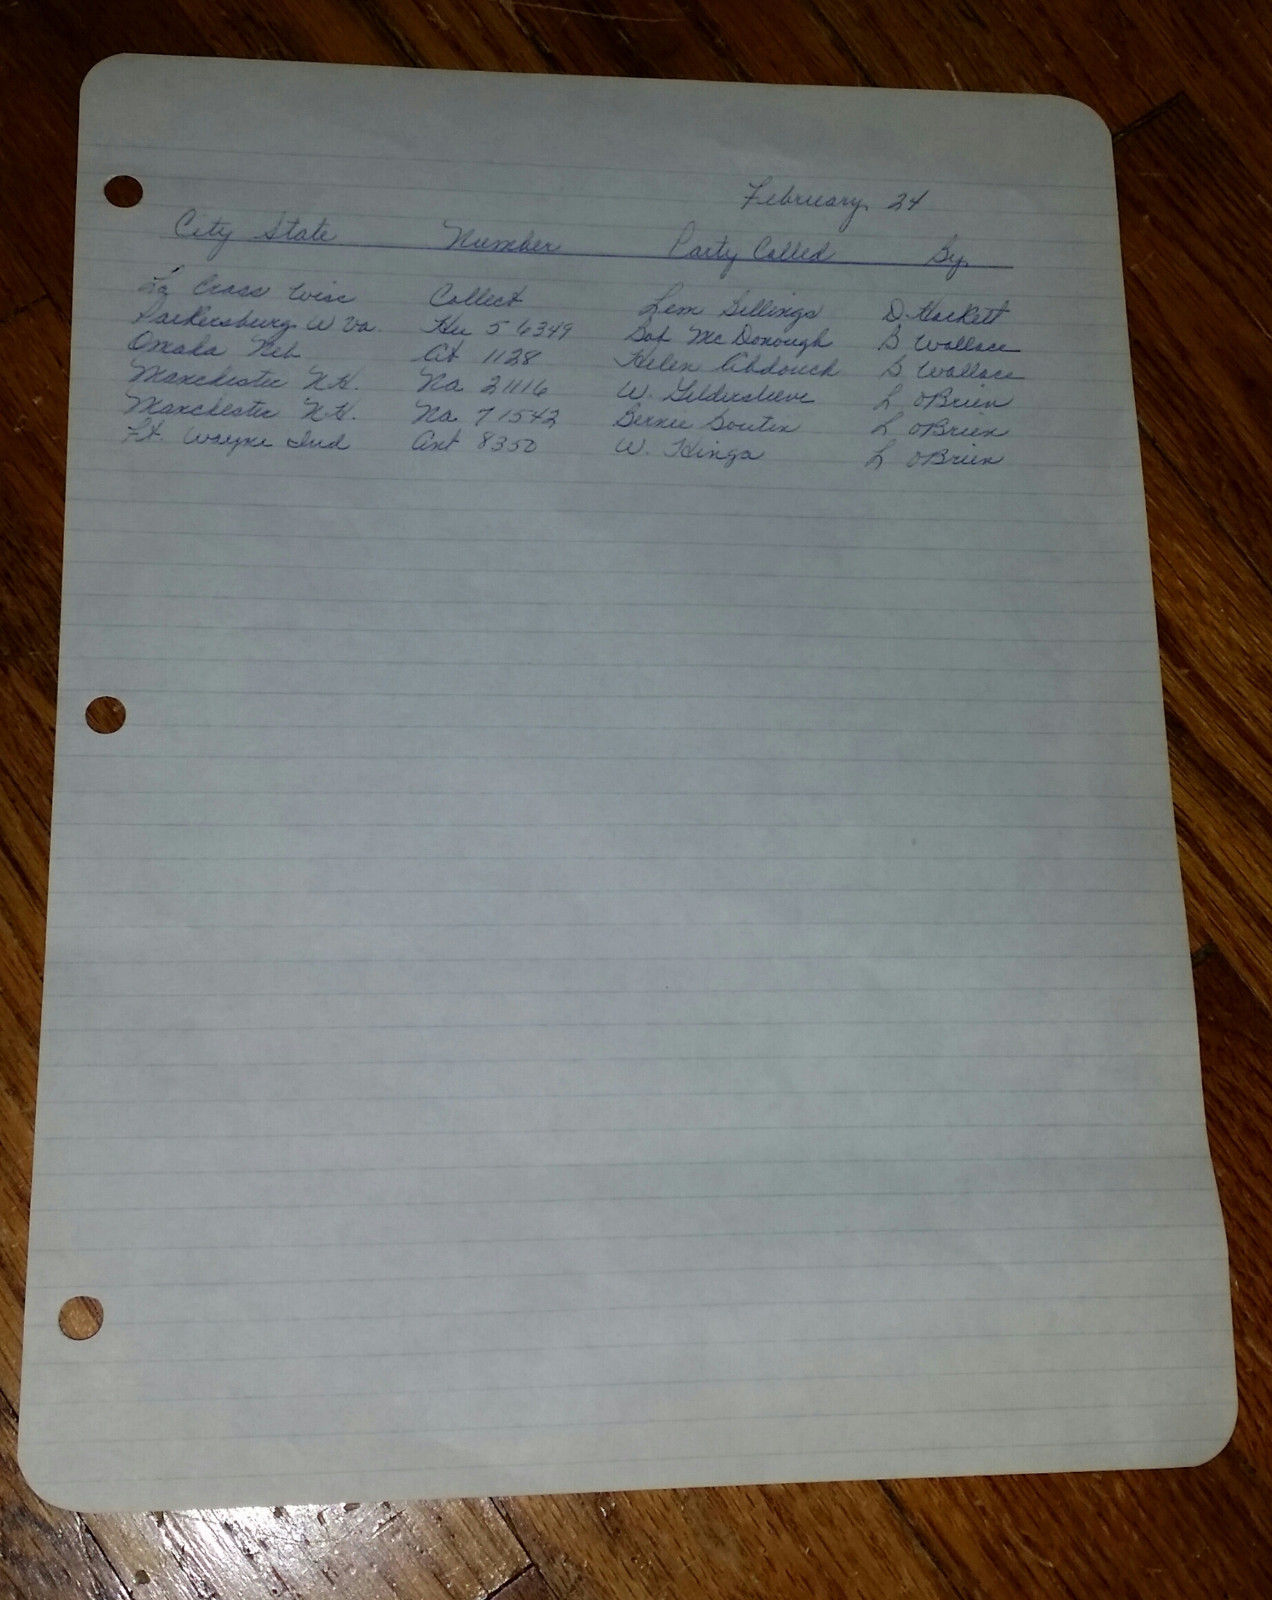 February 24
City State Number Party Called By
La Cross Wisc Collect Lem Billings D. Hackett
Parkersburg W Va. Hu 5 6349 Bob McDonough B Wallace
Omaha Neb At 1128 Helen Abdouch B Wallace
Manchester N.H. Na 21116 W. Gildersleeve L OBrien
Manchester N.H. Na 71542 Bernie Boutin L OBrien
Ft. Wayne Ind Ant 8350 W. Hinga L OBrien